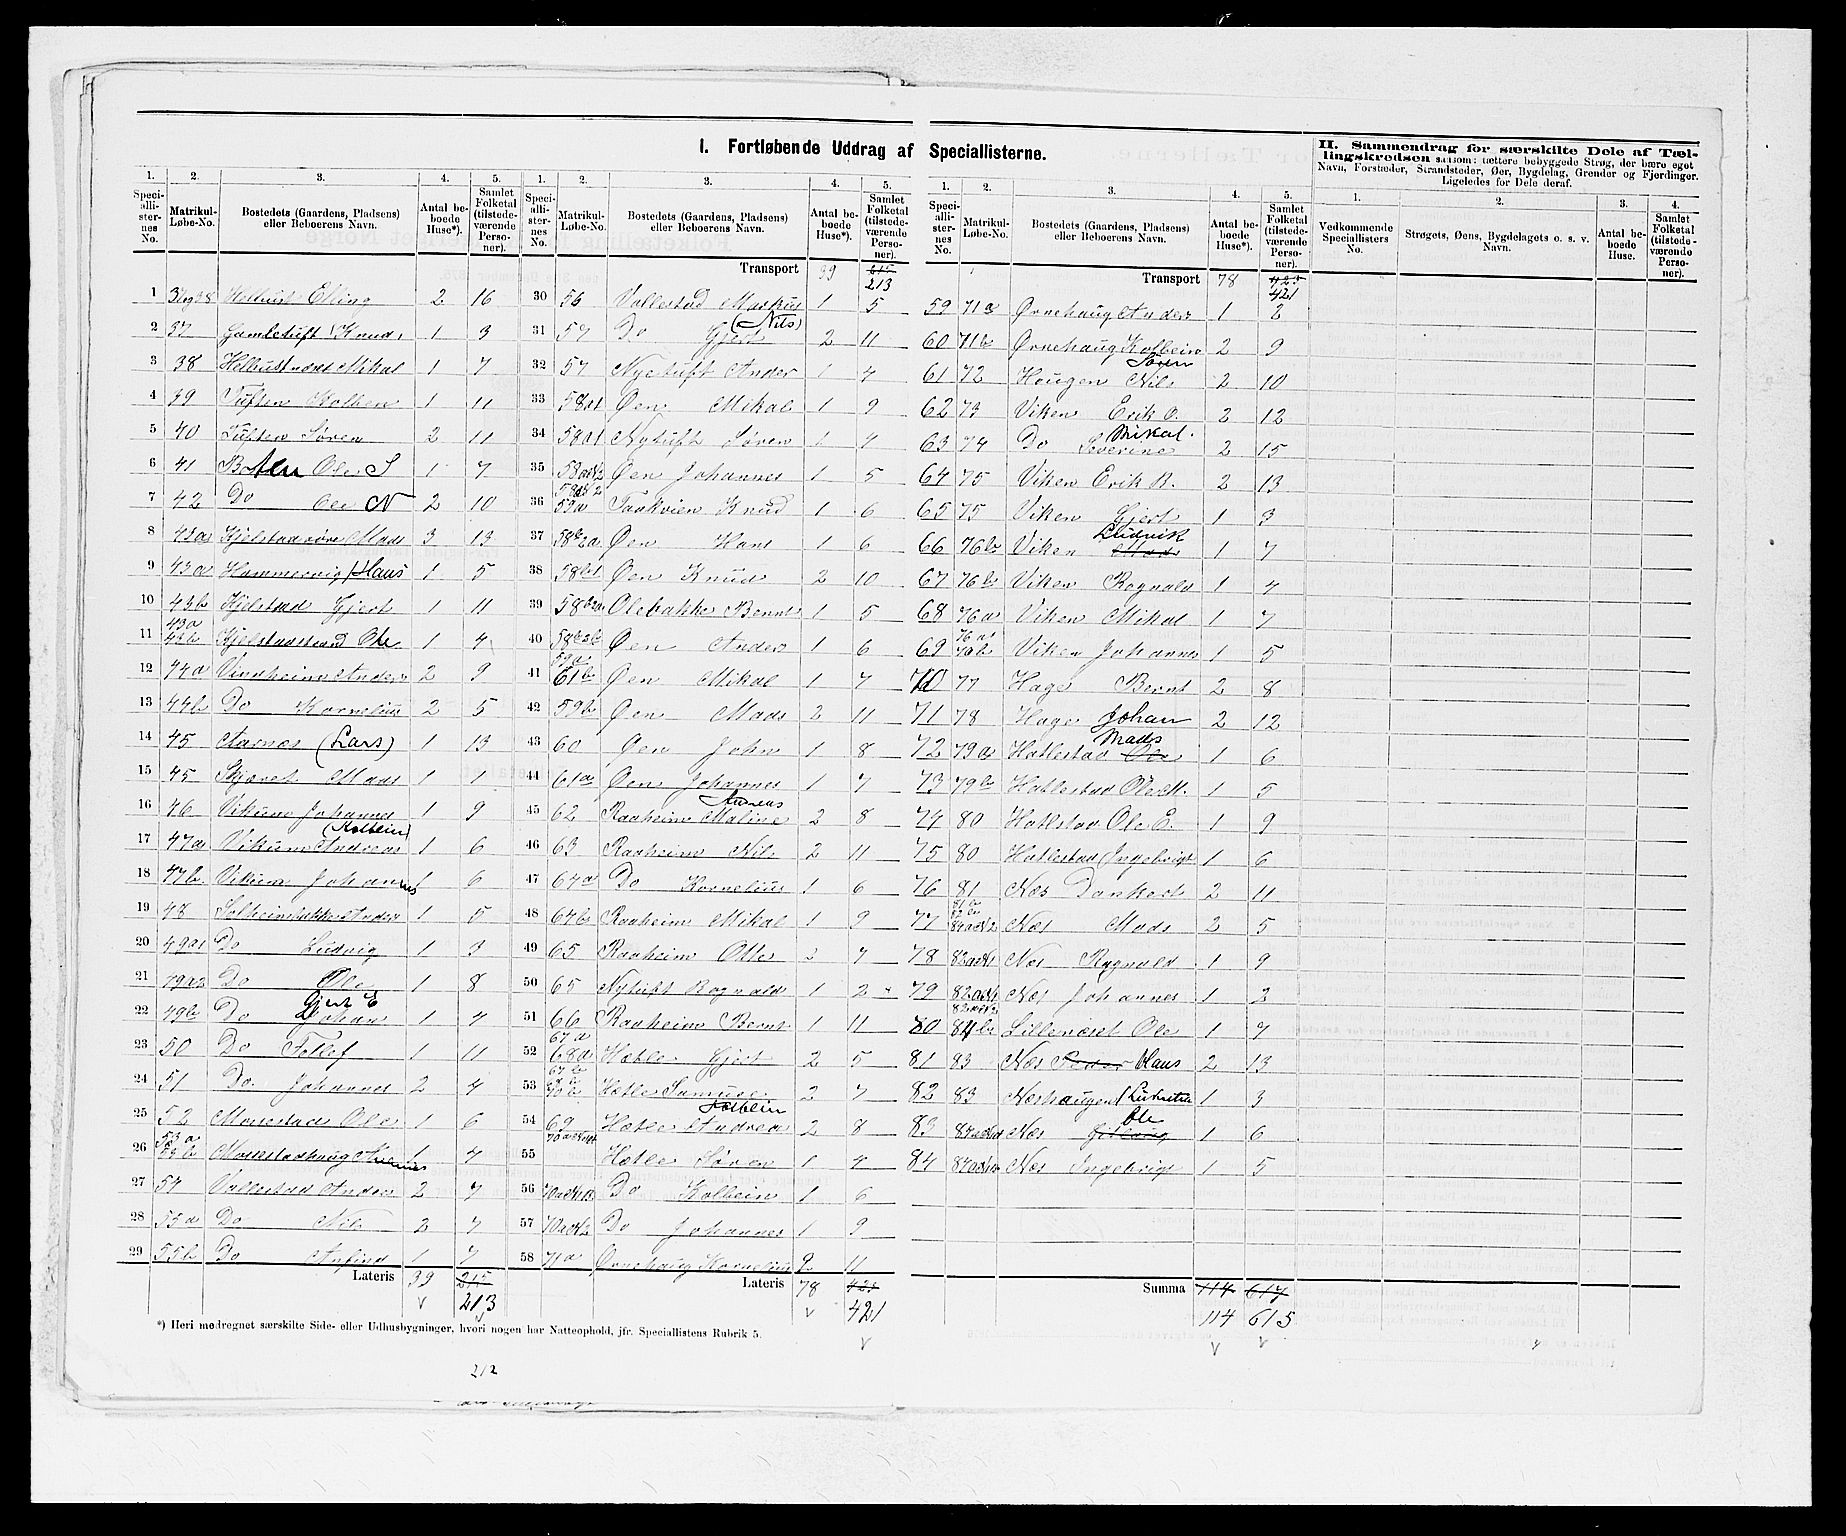 I. Fortløbende Uddrag af Speciallisterne.
II. Sammendrag for særskilte Dele af Tællingskredsen saasom: tættere bebyggede Strøg, der bære eget Navn, Forstæder, Strandsteder, Øer, Bygdelag, Grender og Fjerdinger. Ligeledes for Dele deraf.
1. 2. 3. 4. 5. 1. 2. 3. 4. 5. 1. 2. 3. 4. 5. 1. 2. 3. 4.
Speciallisternes No. Matrikul-Løbe-No. Bostedets (Gaardens, Pladsens) eller Beboerens Navn. Antal beboede Huse*). Samlet Folketal (tilstedeværende Personer).
Speciallisternes No. Matrikul-Løbe-No. Bostedets (Gaardens, Pladsens) eller Beboerens Navn. Antal beboede Huse*). Samlet Folketal (tilstedeværende Personer).
Speciallisternes No. Matrikul-Løbe-No. Bostedets (Gaardens, Pladsens) eller Beboerens Navn. Antal beboede Huse*). Samlet Folketal (tilstedeværende Personer).
Vedkommende Speciallisters No. Strøgets, Øens, Bygdelagets o. s. v. Navn. Antal beboede Huse. Samlet Folketal (tilstedeværende Personer).
1 37og38 Helhust Elling 2 16
2 37 Gamletuft (Knud) 1 3
3 38 Helhustnæs Mikal 1 7
4 39 Tuften Kolben 1 11
5 40 Tuften Søren 2 11
6 41 Ole S 1 7
7 42 Do Ole N 2 10
8 43a Mads 3 13
9 43a Hammervig Hans 1 5
10 43b Kjelstad Gjert 1 11
11 43a 43b Kjelstadstrand Ole 1 4
12 44a Vindheim Anders 2 9
13 44b Do Kornelius 2 5
14 45 Aarnæs (Lars) 1 13
15 45 Skjæret Mads 1 1
16 46 Vikum Johannes 1 9
17 47a Vikum Andreas (Kolbein) 1 6
18 47b Vikum Johannes 1 6
19 48 Solheimsbakke Anders 1 5
20 49a1 Do Ludvig 1 3
21 49a2 Do Ole 1 8
22 49b Do Johan Gjert E 1 4
23 50 Do Tollef 1 11
24 51 Do Johannes 2 4
25 52 Mosestad Ole 1 6
26 53a 53b 1 4
27 54 Vallestad Anders 2 7
28 55a Do Nils 2 7
29 55b Do Anfind 1 7
Lateris 39 215
213
Transport 39 615
213
30 56 Vallestad Markus 1 5
31 57 Do Gjert (Nils) 2 11
32 57 Nyetuft Ander 1 4
33 58a1 Øen Mikal 1 9
34 58a1 Nytuft Søren 1 4
35 Øen Johannes 1 5
36 59a Taakvien Knud 1 6
37 58b2a Øen Hans 1 6
38 58b1 Øen Knud 2 10
39 Olebakke Bernt 1 5
40 58b2b Øen Anders 1 6
41 59a 61b Øen Mikal 1 7
42 59b Øen Mads 2 11
43 60 Øen John 1 8
44 61a Øen Johannes 1 7
45 62 Raaheim Maline Andreas 2 8
46 63 Raaheim Nils 2 11
47 64a Do Kornelius 1 6
48 64b Raaheim Mikal 1 9
49 65 Raaheim Otte 2 7
50 65 Nytuft Ragnald 1 2
51 66 Raaheim Bernt 1 11
52 67a 68a Hætle Gjert 2 5
53 67b Hætle Samuel 2 7
54 69 Hætle Andreas Kolbein 2 8
55 Hætle Søren 1 4
56 Do Kolbein 1 6
57 Do Johannes 1 9
58 71a Ørnehaug Kornelius 2 11
Lateris 78 423
421
Transport 78 423
421
59 71a Ørnehaug Anders 1 2
60 71b Ørnehaug Kolbein 2 9
61 72 Hougen Nils Søren 2 10
62 73 Viken Erik O. 2 12
63 74 Do Severine Mikal. 2 15
64 75 Viken Erik R. 2 13
65 75 Viken Gjert 1 3
66 76b Viken Mads Ludvik 1 7
67 76b Viken Ragnald 1 4
68 76a Viken Mikal 1 7
69 76a 76b Viken Johannes 1 5
70 77 Hage Bernt 2 8
71 78 Hage Johan 2 12
72 79a Hatlestad Ole Mads 1 6
73 79b Hatlestad Ole M. 1 5
74 80 Hatlstad Ole E. 1 9
75 80 Hatlestad Ingebrigt 1 6
76 81 Næs Dankert 2 11
77 81b 82b Næs Mads 2 5
78 Næs Ragnald 1 9
79 Næs Johannes 1 2
80 84b Lillenæset Ole 1 7
81 83 Næs Peder Hans 2 13
82 83 Næshaugen 1 3
83 Næs Ole 1 6
84 Næs Ingebrigt 1 5
Summa 114 617
114 615
*) Heri medregnet særskilte Side- eller Udhusbygninger, hvori nogen har Natteophold, jfr. Speciallistens Rubrik 5.
212